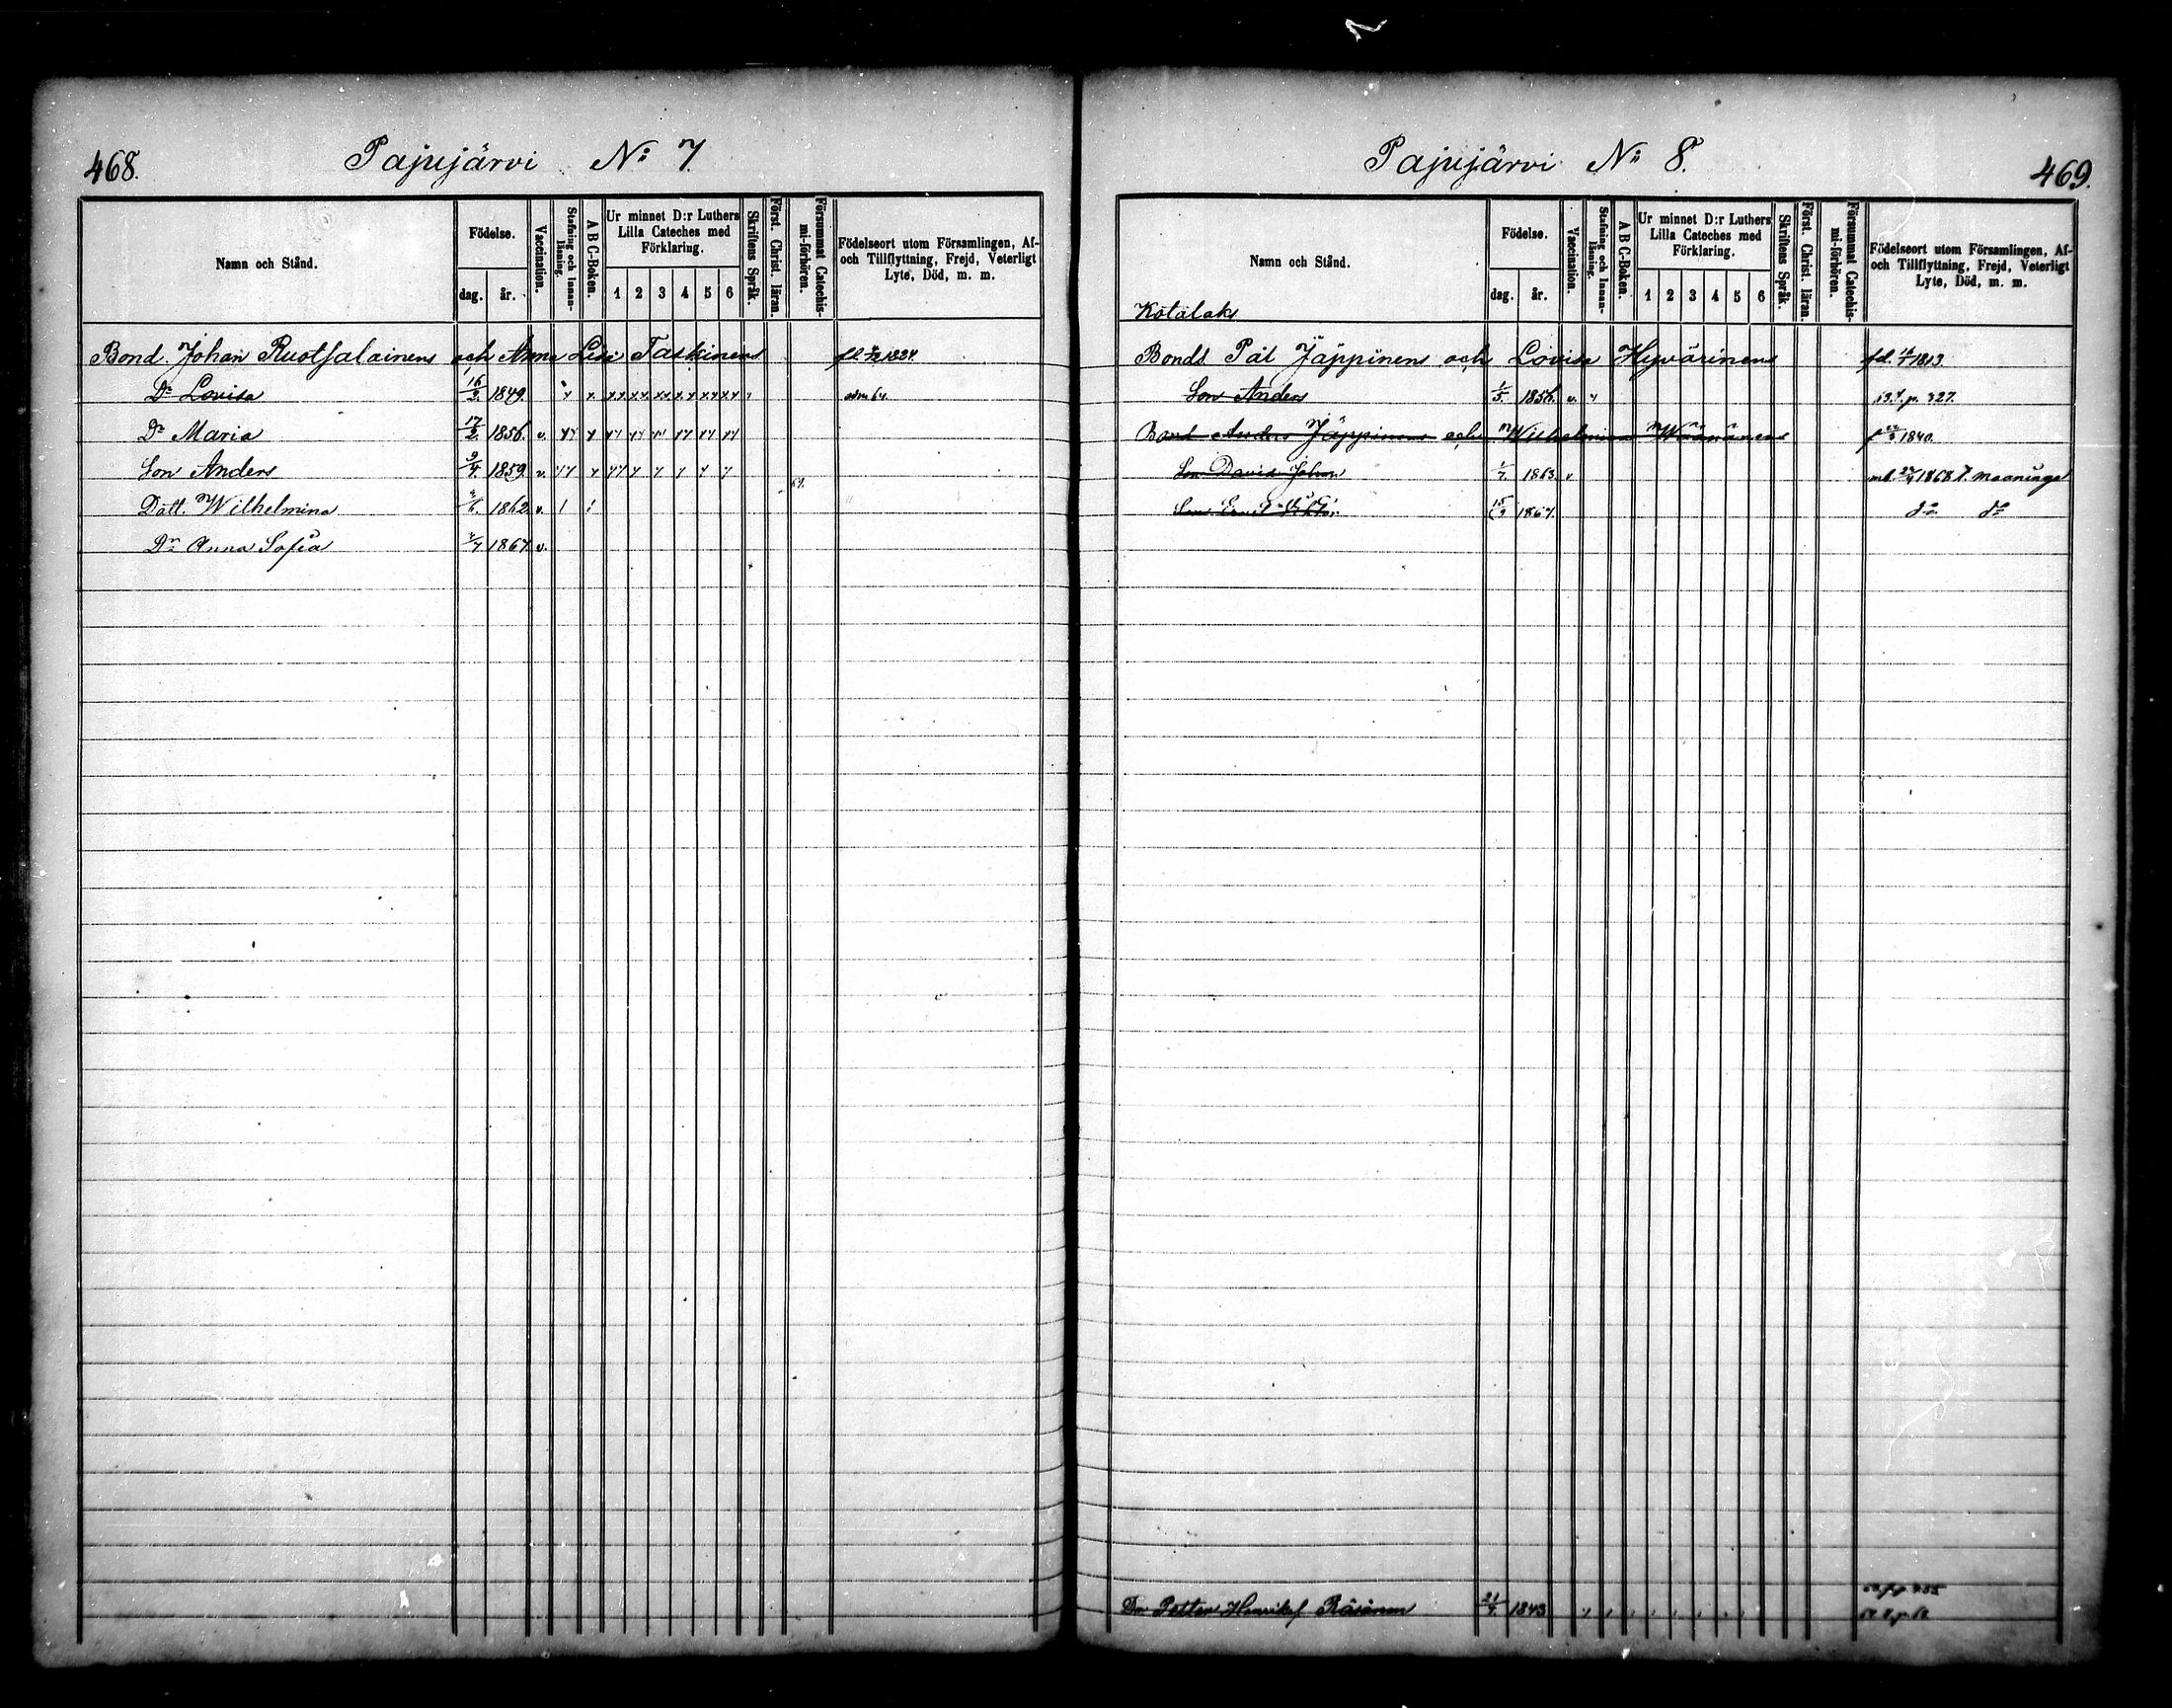 468.
Pajujärvi No 7.
Namn och Stånd.
Födelse.
dag. år.
Vaccination.
Stafning och Innan-läsning.
A B C-Boken.
Ur minnet D:r Luthers
Lilla Cateches med
Förklaring.
1 2 3 4 5 6
Skriftens Språk.
Först. Christ. läran.
Försummat Catechis-mi-förhören.
Födelseort utom Församlingen, Af-
och Tillflyttning, Frejd, Veterligt
Lyte, Död, m. m.
Bond. Johan Ruotsalainens och Anna Lisa Taskinens 1824
Dr Lovisa 16/2. 1849. adm 64.
Dr Maria 17/2. 1856. v.
Son Anders 9/4. 1859. v.
Dött. Wilhelmina 1862 v.
Dr Anna Sofia 1867 v.
Pajujärvi No 8.
469.
Namn och Stånd.
Kotalaks
Födelse.
dag. år.
Vaccination.
Stafning och Innan-läsning.
A B C-Boken.
Ur minnet D:r Luthers
Lilla Cateches med
Förklaring.
1 2 3 4 5 6
Skriftens Språk.
Först. Christ. läran.
Försummat Catechis-mi-förhören.
Födelseort utom Församlingen, Af-
och Tillflyttning, Frejd, Veterligt
Lyte, Död, m. m.
Bonds Pål Jäppinens och Lovisa Hyvärinens fd. 1813.
Son Anders 1/5. 1856. v. p. 327.
Bond Anders Jäppinens och Wilhelmina Wäänänens 1840.
Son David Johan 1/7. 1863. v 1868 t. Maaninga
Son 15/9 1867. do do
Dr Petter Henriksf Räsänen 21/7 1843